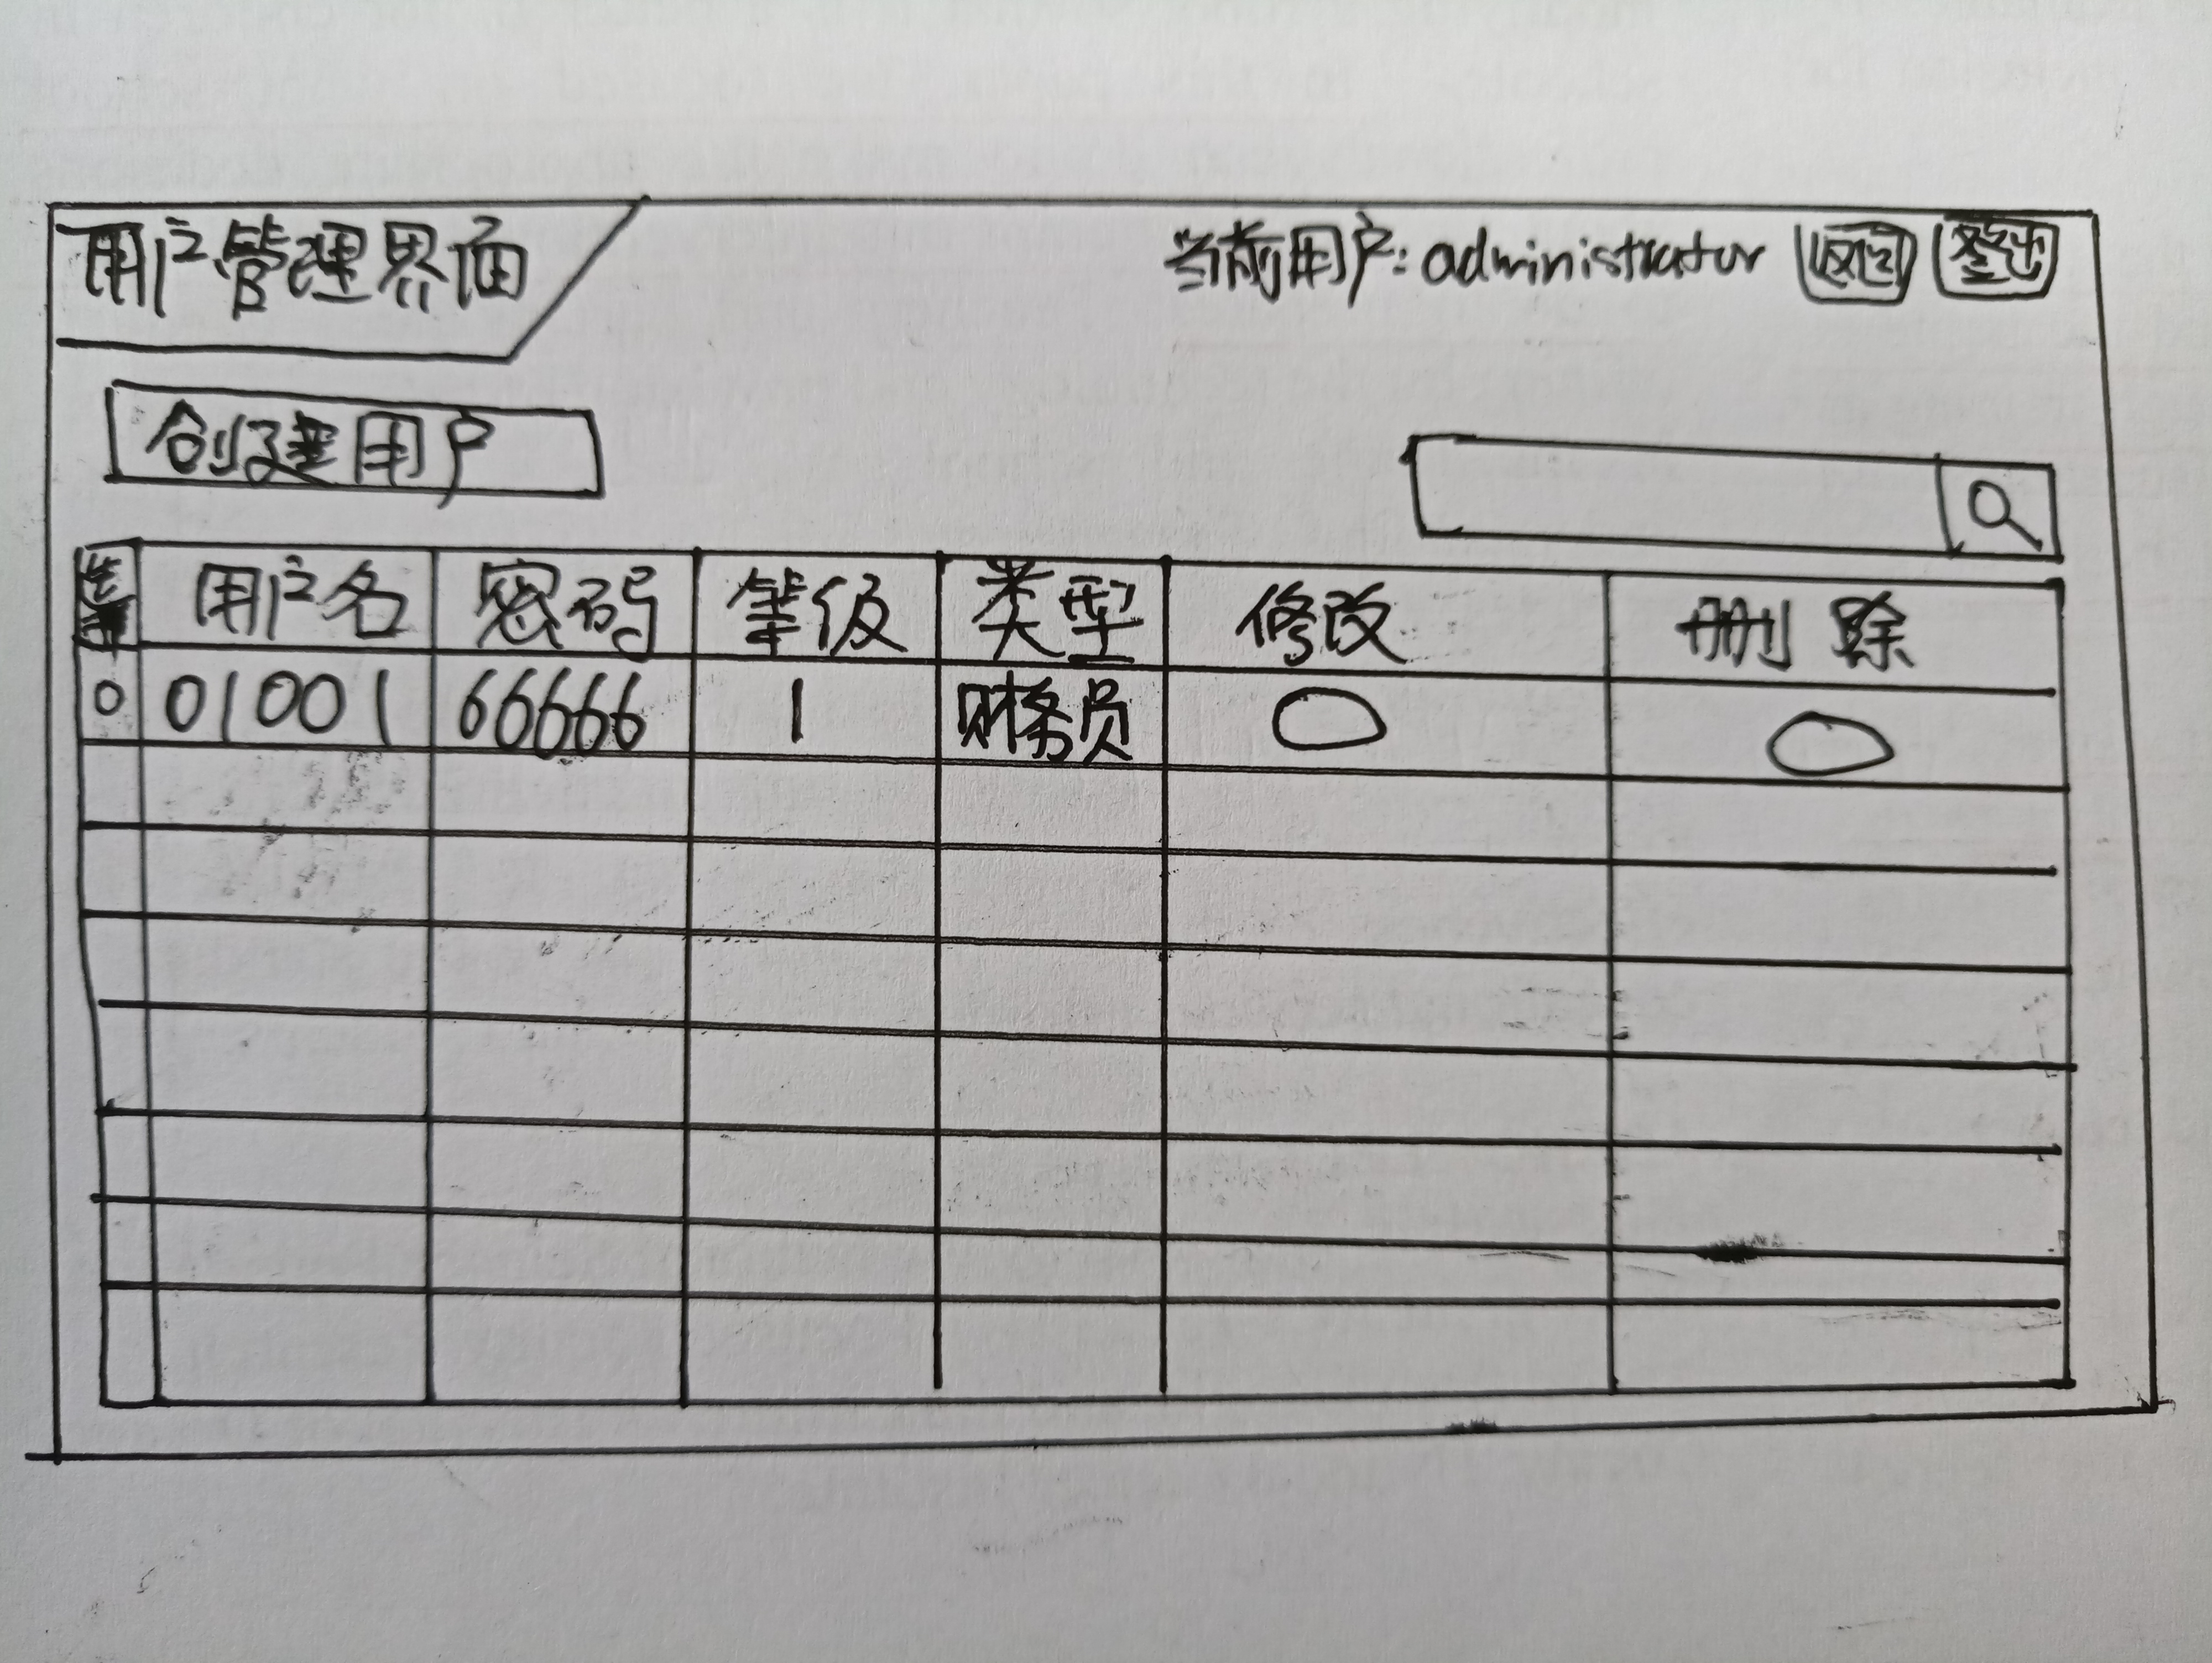 用户管理界面
当前用户: administrator 返回 登出
创建用户
用户名 密码 等级 类型 修改 删除
01001 66666 1 财务员